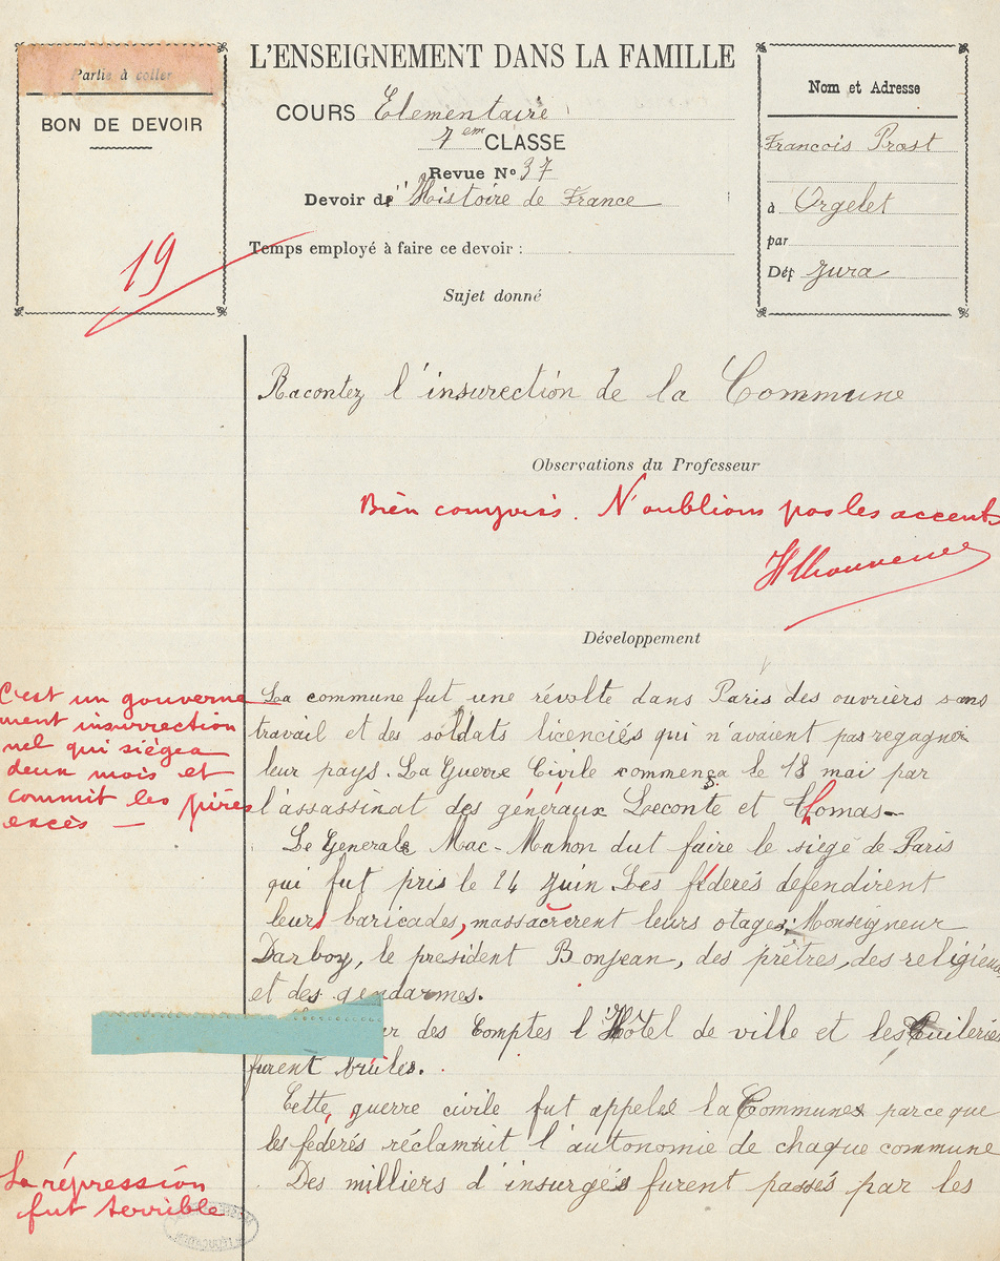 Partie à coller
BON DE DEVOIR
19
L'ENSEIGNEMENT DANS LA FAMILLE
COURS Elementaire
7em CLASSE
Revue No 37
Devoir de "Histoire de France
Temps employé à faire ce devoir :
Sujet donné
Nom et Adresse
Francois Prost
à Orgelet
par
Dép Jura
Racontez l'insurection de la Commune
Observations du Professeur
Bien compris. N'oublions pas les accents
Développement
C'est un gouverne
ment insurrection
nel qui siégea
deux mois et
commit les pires
excès —
La commune fut une révolte dans Paris des ouvriers sans
travail et des soldats licenciés qui n'avaient pas regagner
leur pays. La Guerre Civile commença le 18 mai par
l'assassinat des généraux Leconte et Thomas-
Le Generale Mac-Mahon dut faire le siège de Paris
qui fut pris le 24 Juin Les féderés defendirent
leurs baricades, massacrerent leurs otages: Monseigneur
Darboy, le president Bonjean, des prêtres, des religieux,
et des gendarmes.
des Comptes l'Hôtel de ville et les Tuileries
furent brûles.
Cette, guerre civile fut appelée la Commune parce que
les féderés réclamait l'autonomie de chaque commune
Des milliers d'insurgés furent passés par les
La répression
fut terrible